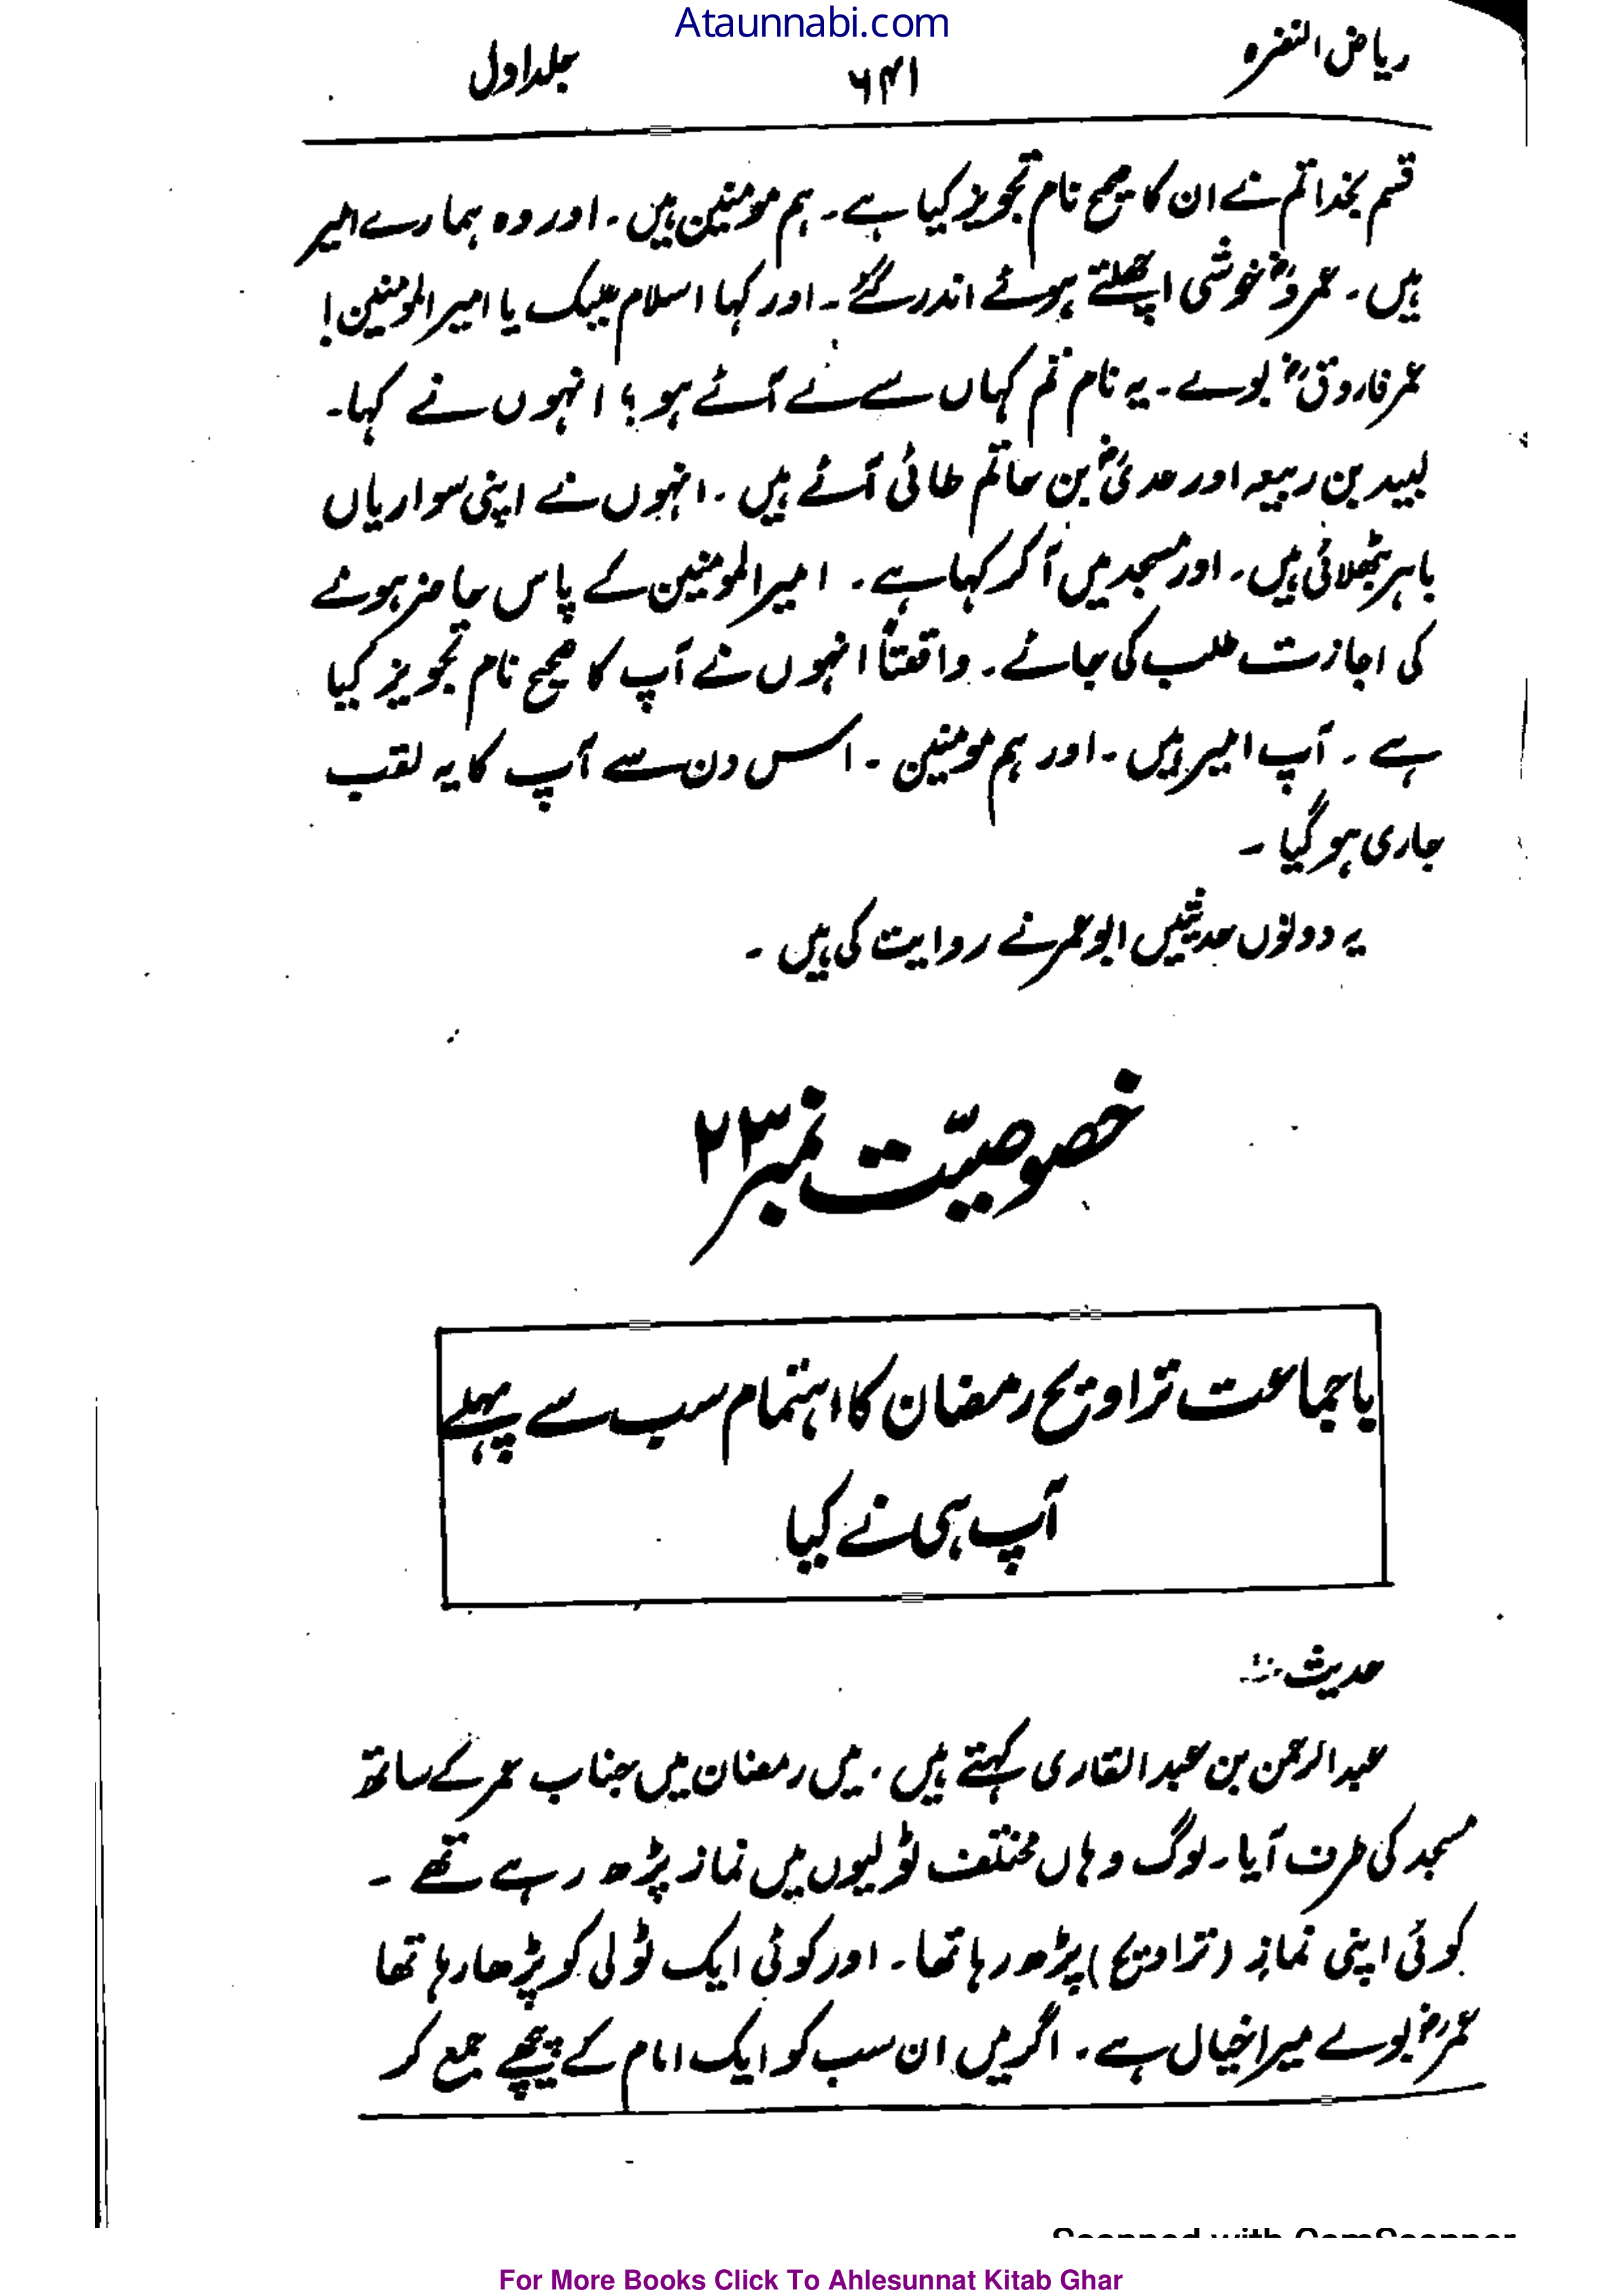 Ataunnabi.com
ریاض النضرہ ۶۴۱ جلد اول
قسم بخدا تم نے ان کا صحیح نام تجویز کیا ہے۔ ہم مومنین ہیں۔ اور وہ ہمارے امیر
ہیں۔ عمروؓ خوشی اچھلتے ہوئے اندر گئے۔ اور کہا اسلام علیک یا امیر المومنین!
عمر فاروقؓ بولے۔ یہ نام تم کہاں سے لے آئے ہو؟ انہوں نے کہا۔
لبید بن ربیعہ اور عدیؓ بن حاتم طائی آئے ہیں۔ انہوں نے اپنی سواریاں
باہر بٹھلائی ہیں۔ اور مسجد میں آ کر کہا ہے۔ امیر المومنین کے پاس حاضر ہونے
کی اجازت طلب کی جائے۔ واقعتاً انہوں نے آپ کا صحیح نام تجویز کیا
ہے۔ آپ امیر ہیں۔ اور ہم مومنین۔ اس دن سے آپ کا یہ لقب
جاری ہو گیا۔
یہ دونوں حدیثیں ابو عمر نے روایت کی ہیں۔
خصوصیّت نمبر ۲۳
باجماعت تراویح رمضان کا اہتمام سب سے پہلے
آپ ہی نے کیا
حدیث
عبد الرحمن بن عبد القاری کہتے ہیں، میں رمضان میں جناب عمر کے ساتھ
مسجد کی طرف آیا۔ لوگ وہاں مختلف ٹولیوں میں نماز پڑھ رہے تھے۔
کوئی اپنی نماز (تراویح) پڑھ رہا تھا۔ اور کوئی ایک ٹولی کو پڑھا رہا تھا
عمرؓ بولے میرا خیال ہے۔ اگر میں ان سب کو ایک امام کے پیچھے جمع کر
Scanned with CamScanner
For More Books Click To Ahlesunnat Kitab Ghar